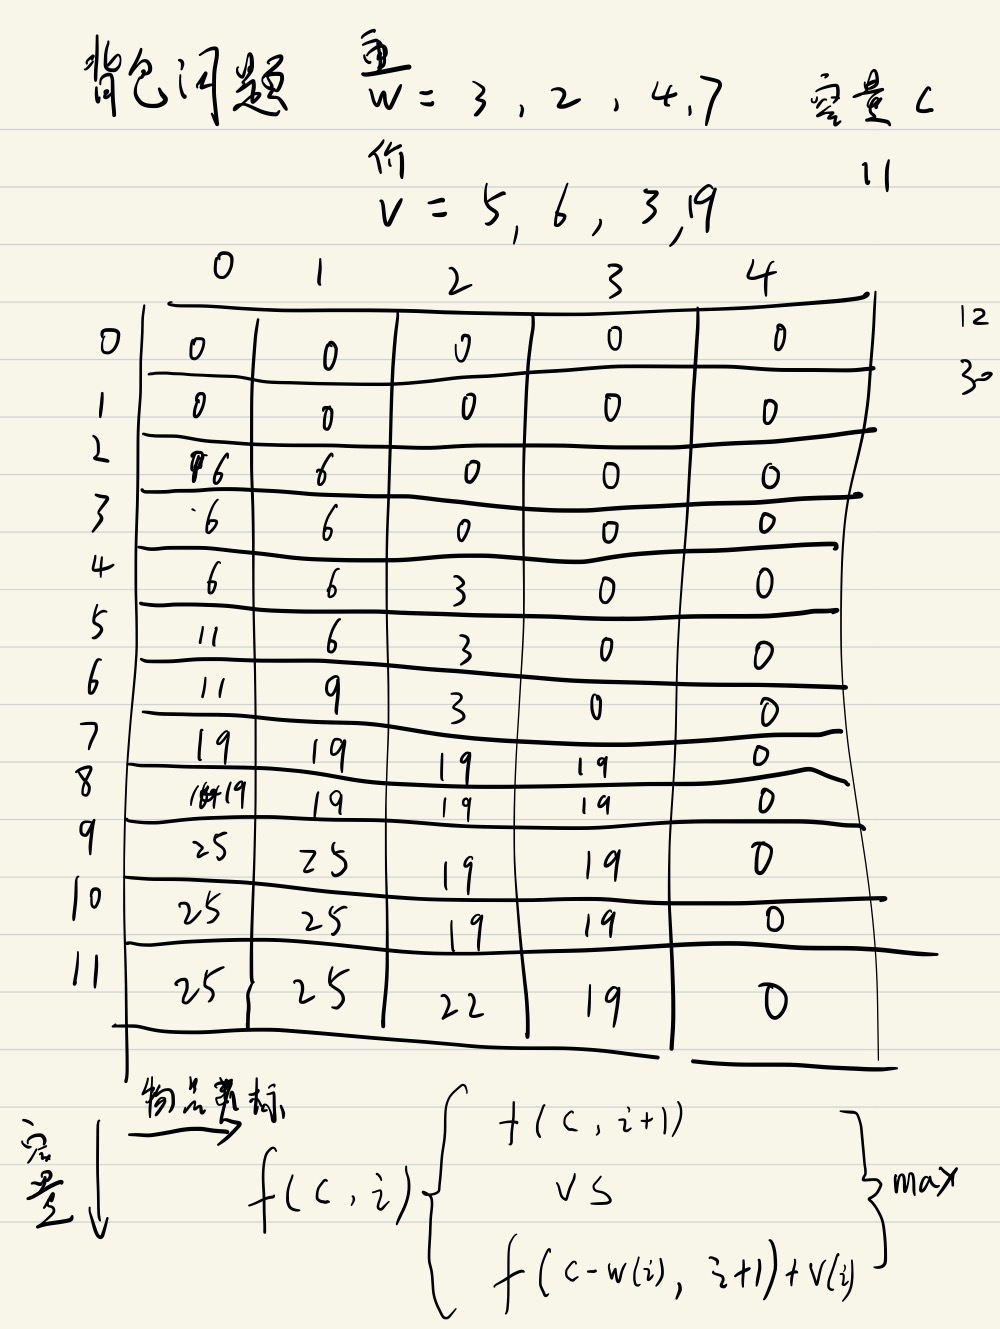 背包问题 重 容量 c
w = 3 , 2 , 4 , 7
价 11
v = 5 , 6 , 3 , 19
0 1 2 3 4
0 0 0 0 0 0 12
1 0 0 0 0 0 30
2 6 6 0 0 0
3 6 6 0 0 0
4 6 6 3 0 0
5 11 6 3 0 0
6 11 9 3 0 0
7 19 19 19 19 0
8 19 19 19 19 0
9 25 25 19 19 0
10 25 25 19 19 0
11 25 25 22 19 0
物品 标
容量
f(c, i+1)
f(c, i) { VS } max
f(c-w(i), i+1)+v(i)